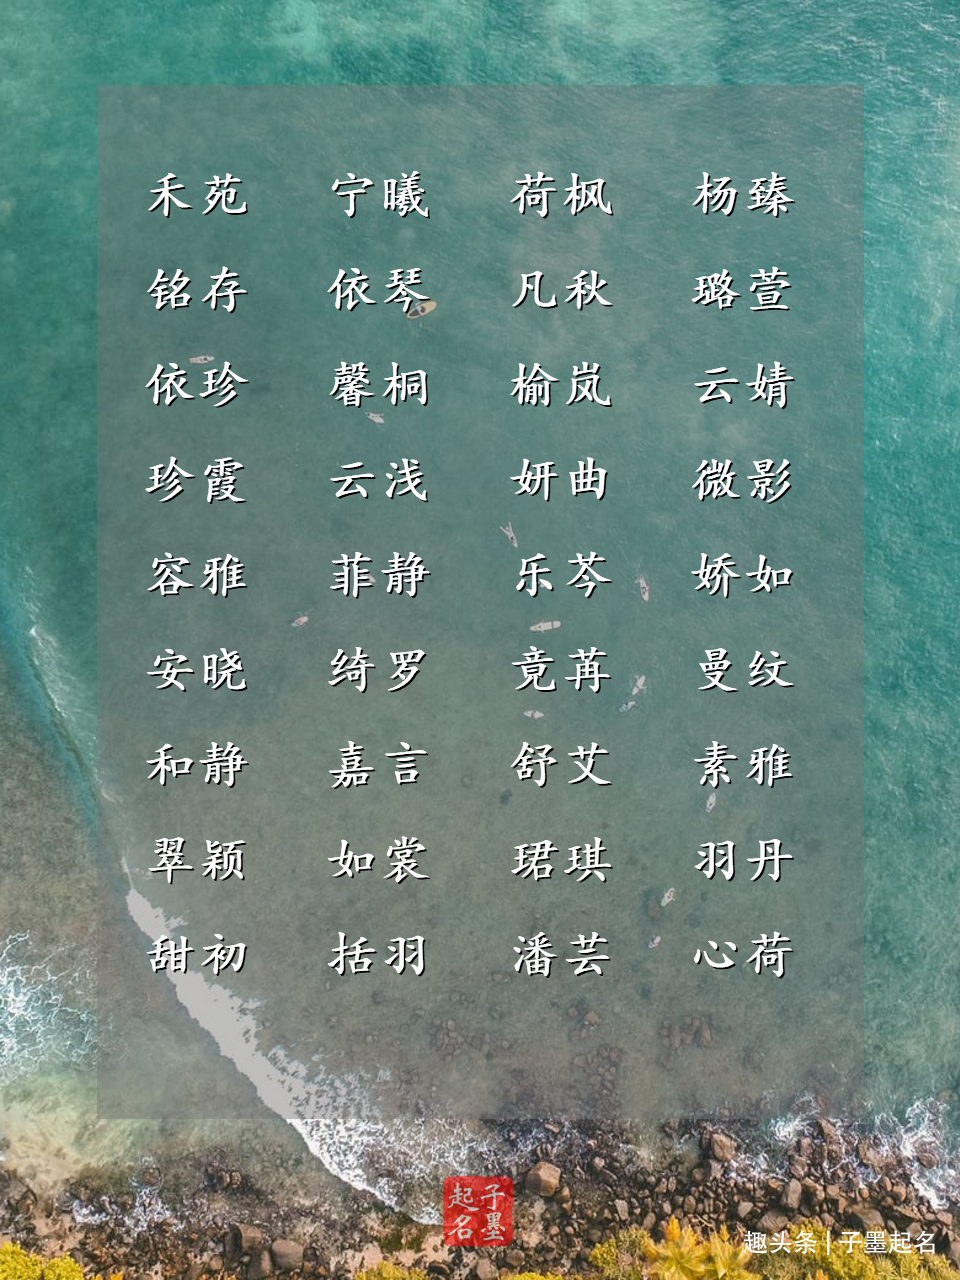 禾苑 宁曦 荷枫 杨臻
铭存 依琴 凡秋 璐萱
依珍 馨桐 榆岚 云婧
珍霞 云浅 妍曲 微影
容雅 菲静 乐芩 娇如
安晓 绮罗 竟苒 曼纹
和静 嘉言 舒艾 素雅
翠颖 如裳 珺琪 羽丹
甜初 括羽 潘芸 心荷
子墨起名
趣头条 | 子墨起名